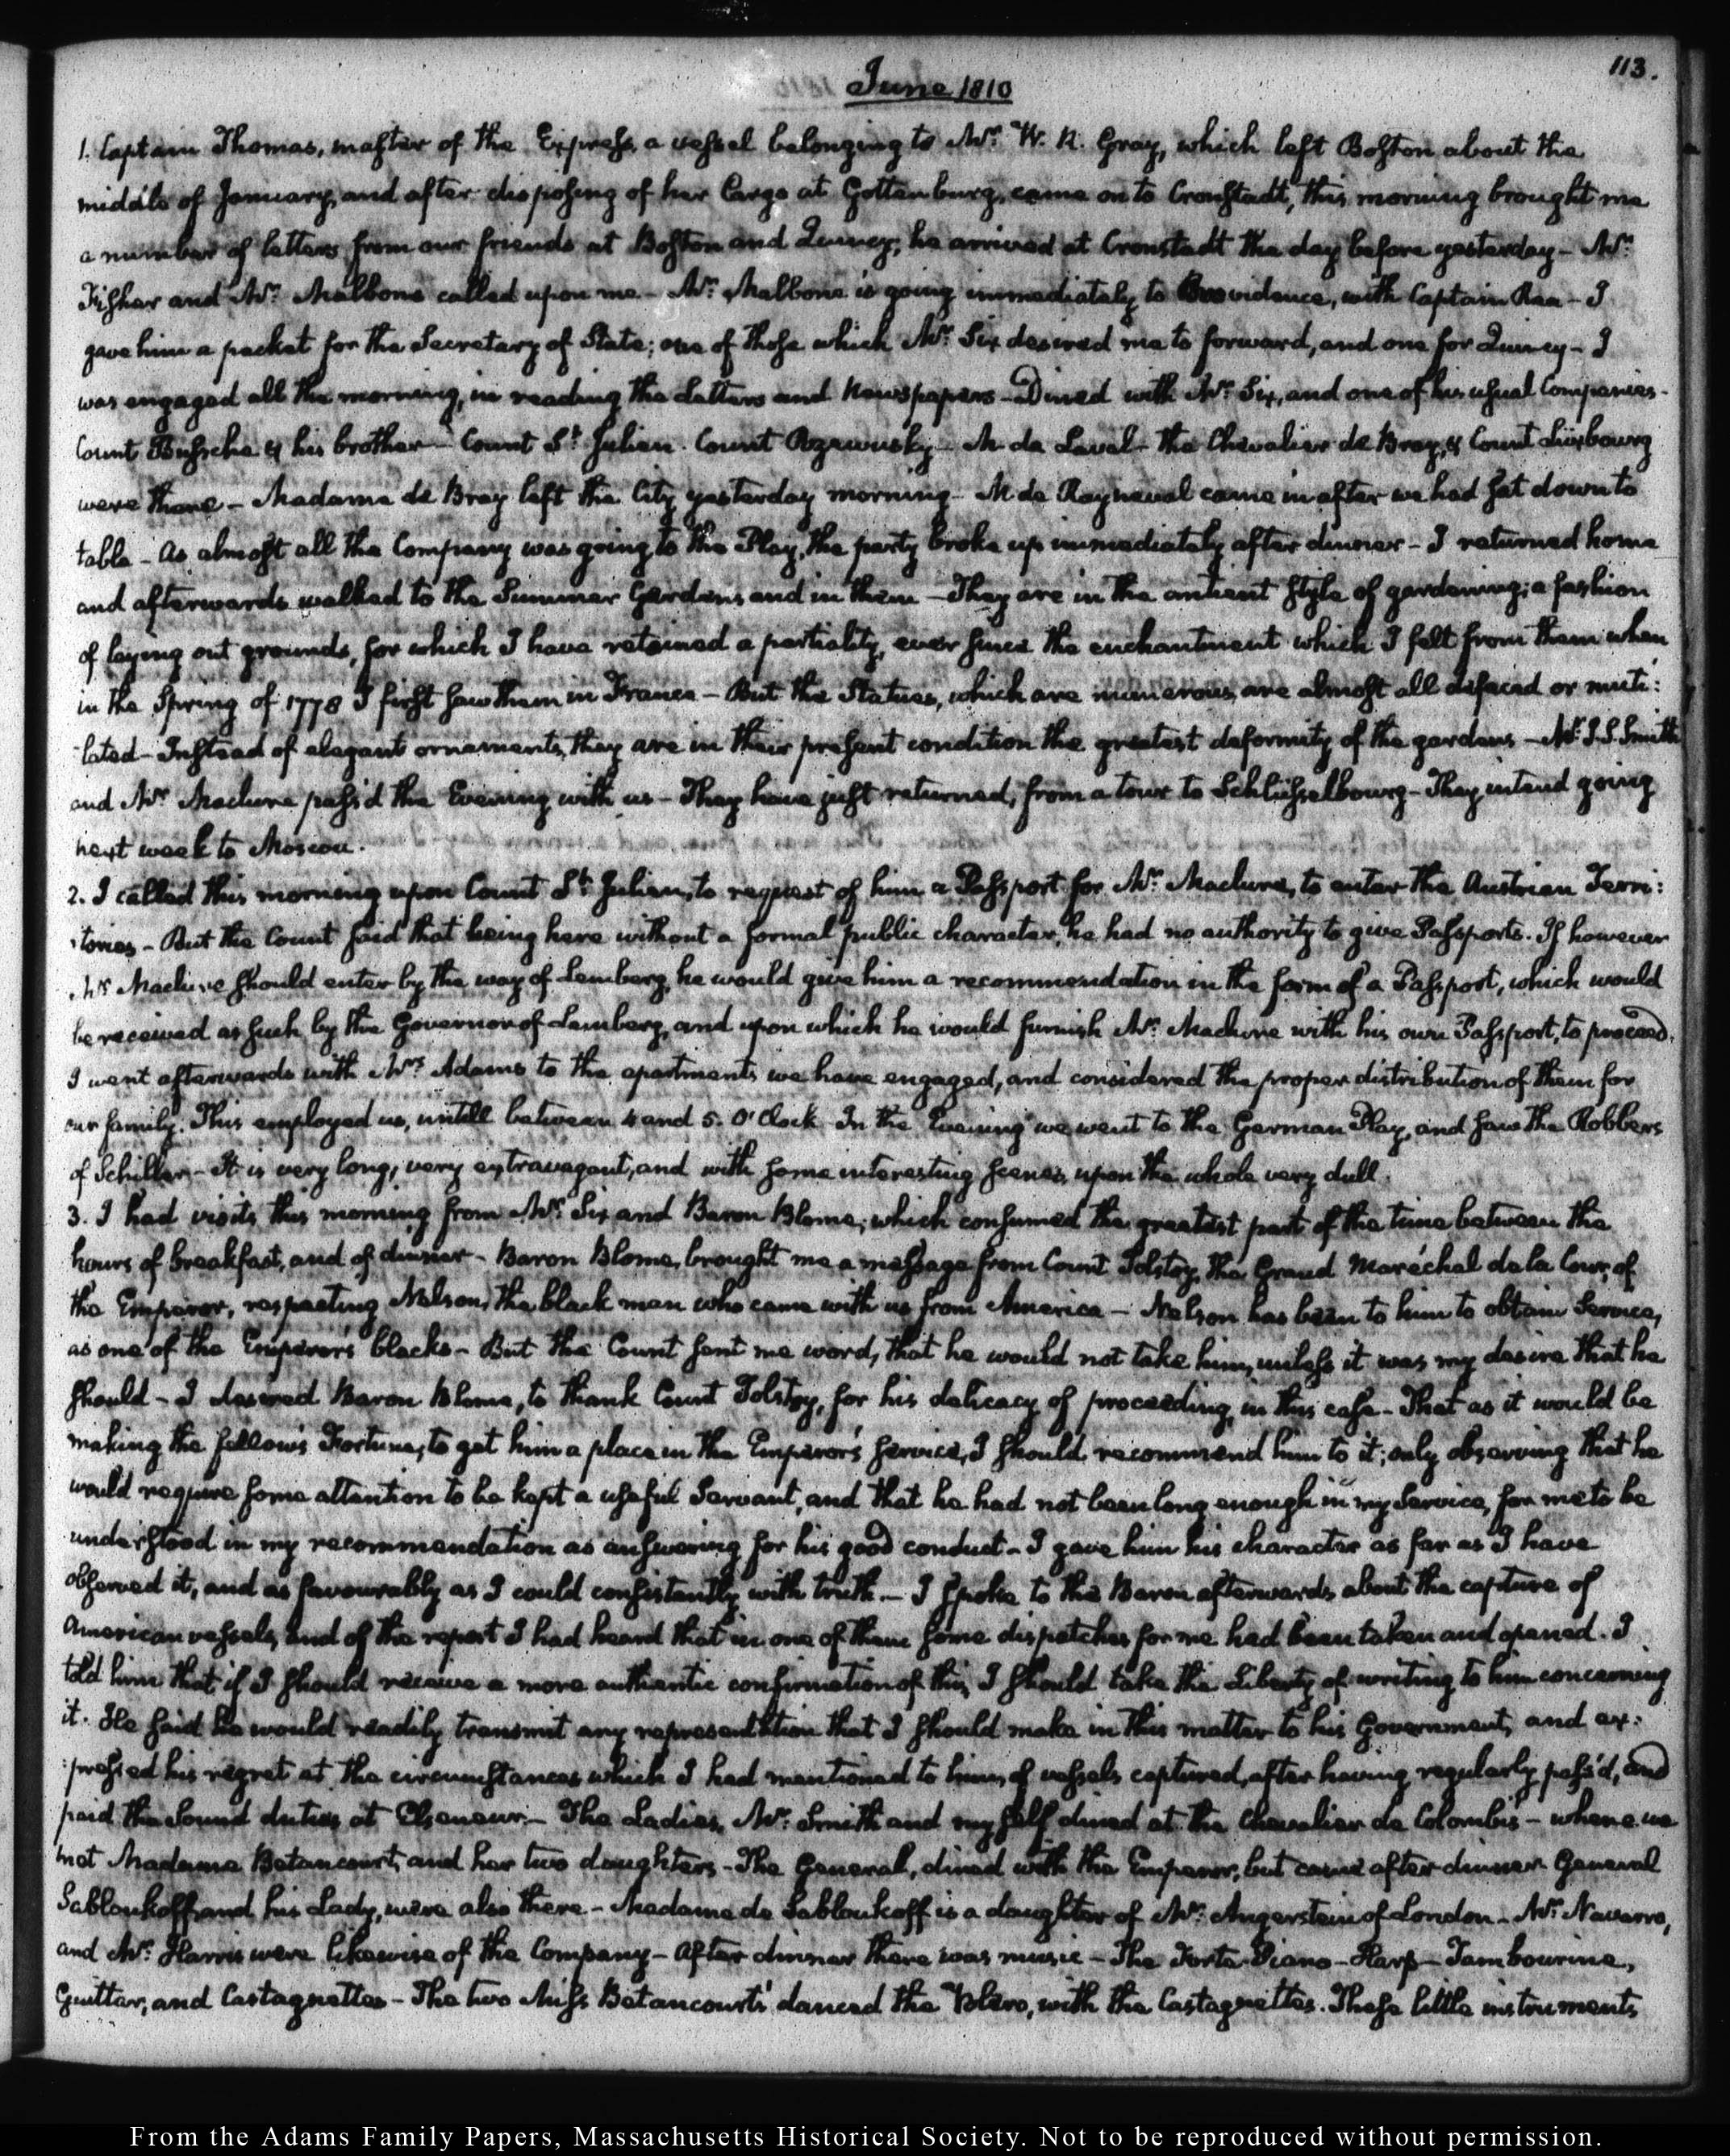 113.
June 1810
1. Captain Thomas, master of the Express, a vessel belonging to Mr. W. R. Gray, which left Boston about the
middle of January, and after disposing of her Cargo at Gottenburg, came on to Cronstadt, this morning brought me
a number of letters from our friends at Boston and Quincy; he arrived at Cronstadt the day before yesterday — Mr.
Fisher and Mr. Malbone called upon me — Mr. Malbone is going immediately to Providence, with Captain Rea — I
gave him a packet for the Secretary of State; one of those which Mr. Six desired me to forward, and one for Quincy — I
was engaged all the morning, in reading the Letters and Newspapers — Dined with Mr. Six, and one of his usual Companies —
Count Bussche & his brother — Count St. Julien. Count Rzewusky — M de Laval — the Chevalier de Bray, & Count Luxbourg
were there — Madame de Bray left the City yesterday morning — M de Rayneval came in after we had sat down to
table — As almost all the Company was going to the Play, the party broke up immediately after dinner — I returned home
and afterwards walked to the Summer Gardens and in them — They are in the antient style of gardening; a fashion
of laying out grounds, for which I have retained a partiality, ever since the enchantment which I felt from them when
in the Spring of 1778 I first saw them in France — But the Statues, which are numerous, are almost all defaced or muti:
:lated — Instead of elegant ornaments, they are in their present condition the greatest deformity of the gardens — Mr. J. S. Smith
and Mr. Maclure pass'd the Evening with us — They have just returned, from a tour to Schlüsselbourg — They intend going
next week to Moscow.
2. I called this morning upon Count St. Julien, to request of him a Passport for Mr. Maclure, to enter the Austrian Terri:
:tories — But the Count said that being here without a formal public character, he had no authority to give Passports. If however
Mr. Maclure should enter by the way of Lemberg, he would give him a recommendation in the form of a Passport, which would
be received as such by the Governor of Lemberg, and upon which he would furnish Mr. Maclure with his own Passport, to proceed.
I went afterwards with Mrs. Adams to the apartments we have engaged, and considered the proper distribution of them for
our family. This employed us, untill between 4 and 5. O'Clock. In the Evening we went to the German Play, and saw the Robbers
of Schiller — It is very long, very extravagant, and with some interesting scenes, upon the whole very dull.
3. I had visits this morning from Mr. Six and Baron Blome; which consumed the greatest part of the time between the
hours of breakfast, and of dinner — Baron Blome, brought me a message from Count Tolstoy, the Grand Maréchal de la Cour, of
the Emperor, respecting Nelson, the black man who came with us from America — Nelson has been to him to obtain Service,
as one of the Emperor's blacks — But the Count sent me word, that he would not take him, unless it was my desire that he
should — I desired Baron Blome, to thank Count Tolstoy, for his delicacy of proceeding, in this case — That as it would be
making the fellow's Fortune, to get him a place in the Emperor's service, I should recommend him to it; only observing that he
would require some attention to be kept a useful Servant, and that he had not been long enough in my Service, for me to be
understood in my recommendation as answering for his good conduct — I gave him his character as far as I have
observed it, and as favourably as I could consistently with truth. — I spoke to the Baron afterwards about the capture of
American vessels, and of the report I had heard that in one of them some dispatches for me had been taken and opened. I
told him that if I should receive a more authentic confirmation of this, I should take the Liberty of writing to him concerning
it. He said he would readily transmit any representation that I should make in this matter to his Government, and ex:
:pressed his regret at the circumstances which I had mentioned to him, of vessels captured, after having regularly pass'd, and
paid the Sound duties at Elseneur. — The Ladies, Mr. Smith and myself dined at the Chevalier de Colombi's — where we
met Madame Betancourt, and her two daughters — The General, dined with the Emperor, but came after dinner. General
Sabloukoff, and his Lady, were also there — Madame de Sabloukoff is a daughter of Mr. Angerstein of London — Mr. Navarro,
and Mr. Harris were likewise of the Company — After dinner there was music — The Forte-Piano — Harp — Tambourine,
Guittar, and Castagnettes — The two Miss Betancourts' danced the Bolero, with the Castagnettes. These little instruments
From the Adams Family Papers, Massachusetts Historical Society. Not to be reproduced without permission.